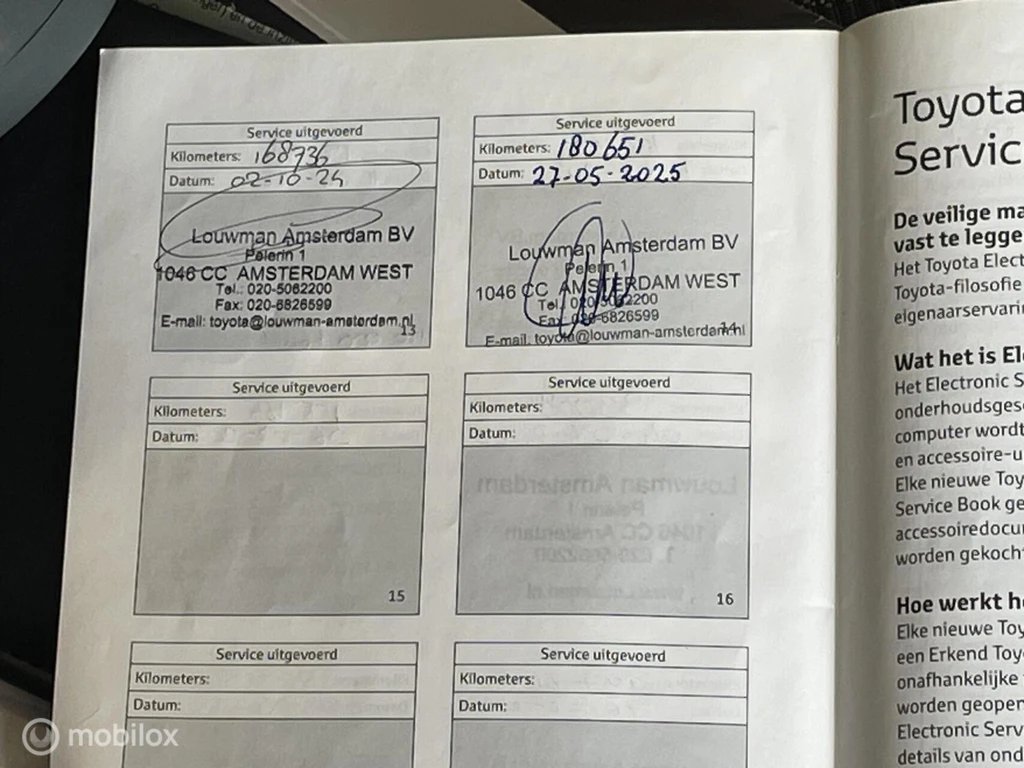 Service uitgevoerd
Kilometers: 168736
Datum: 02-10-24
Louwman Amsterdam BV
Pelerin 1
1046 CC AMSTERDAM WEST
Tel.: 020-5062200
Fax: 020-6826599
E-mail: toyota@louwman-amsterdam.nl
13
Service uitgevoerd
Kilometers: 180651
Datum: 27-05-2025
Louwman Amsterdam BV
Pelerin 1
1046 CC AMSTERDAM WEST
Tel.: 020-5062200
Fax: 020-6826599
E-mail: toyota@louwman-amsterdam.nl
14
Service uitgevoerd
Kilometers:
Datum:
15
Service uitgevoerd
Kilometers:
Datum:
16
Service uitgevoerd
Kilometers:
Datum:
Service uitgevoerd
Kilometers:
Datum:
Toyota
Servic
De veilige ma
vast te legge
Het Toyota Elect
Toyota-filosofie
eigenaarservari
Wat het is El
Het Electronic S
onderhoudsges
computer wordt
en accessoire-u
Elke nieuwe Toy
Service Book ge
accessoiredocu
worden gekocht
Hoe werkt h
Elke nieuwe Toy
een Erkend Toy
onafhankelijke
worden geopen
Electronic Serv
details van ond
mobilox